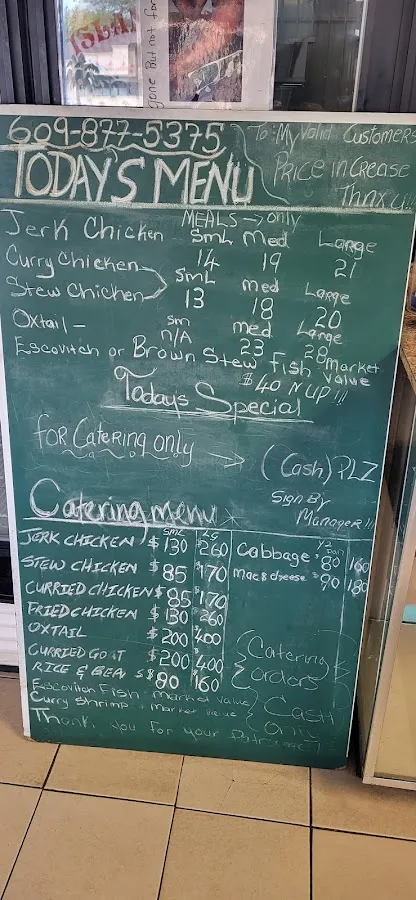 one but not for
609-877-5375
To: My Valid Customers
PRICE inCrease
Thanx u!!!
TODAY'S MENU
MEALS → only
Jerk Chicken SmL Med Large
14 19 21
Curry Chicken
Stew Chicken SmL med Large
13 18 20
Oxtail - sm med Large
n/A 23 28
Escovitch or Brown Stew Fish market Value
$40 N UP!!!
Todays Special
FOR Catering only → (Cash) PLZ
Sign By
Manager!!!
Catering menu
SML LG
JERK CHICKEN $130 $260
STEW CHICKEN $85 $170
CURRIED CHICKEN $85 $170
FRIED CHICKEN $130 $260
OXTAIL $200 $400
CURRIED GOAT $200 $400
RICE & BEAS $80 160
Escovitch Fish - market value
Curry Shrimp - market value
Thank you for your Patronage
1/2 pan
Cabbage $80 160
Mac & cheese $90 180
Catering orders
Cash Only